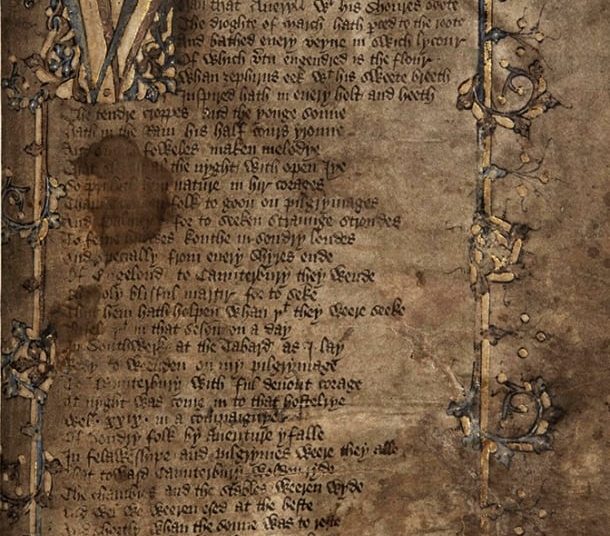 han that Aueryll wt his shoures soote
The droghte of march hath pced to the roote
And bathed euery veyne in swich lycour
Of which vtu engendred is the flour
Whan zephirus eek wt his sweete breeth
Inspired hath in euery holt and heeth
The tendre croppes and the yonge sonne
Hath in the Ram his half cours yronne
And foweles maken melodye
al the nyght with open Iye
So hem nature in hir corages
folk to goon on pilgrymages
And for to seeken straunge strondes
To ferne kouthe in sondry londes
And specially from euery shyres ende
Of Engelond to Caunterbury they wende
The holy blisful martir for to seke
That hem hath holpen whan yt they weere seeke
in that seson on a day
In Southwerk at the Tabard as I lay
Redy to weenden on my pilgrymage
To Caunterbury with ful deuout corage
At nyght was come in to that hostelrye
Wel xxix in a compaignye
Of sondry folk by auenture yfalle
In felaweshipe and pilgrymes weere they alle
That toward Caunterbury wolden ryde
The chambres and the stables weeren wyde
And wel we weeren esed at the beste
And shortly whan the sonne was to reste